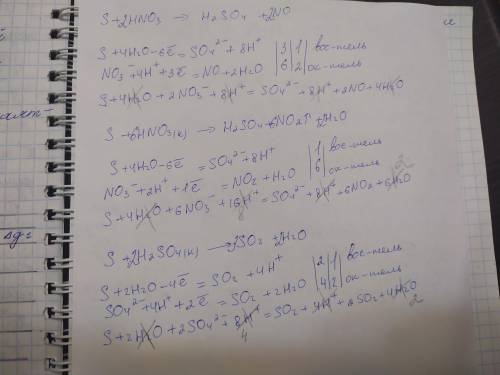 S+2HNO₃ → H₂SO₄ + 2NO
S+4H₂O-6ē = SO₄²⁻ + 8H⁺ |3|1| вос-тель
NO₃⁻+4H⁺+3ē = NO+2H₂O |6|2| ок-тель
S+4H₂O + 2NO₃⁻ + 8H⁺ = SO₄²⁻ + 8H⁺ + 2NO + 4H₂O
S+6HNO₃(к) → H₂SO₄+6NO₂↑+2H₂O
S+4H₂O-6ē = SO₄²⁻+8H⁺ |1| вос-тель
NO₃⁻+2H⁺ + 1ē = NO₂ + H₂O |6| ок-тель
S+4H₂O + 6NO₃⁻ + 16H⁺ = SO₄²⁻ + 8H⁺ + 6NO₂ + 6H₂O
8 2
S+2H₂SO₄(к) → 3SO₂ + 2H₂O
S+2H₂O-4ē = SO₂ + 4H⁺ |2|1| вос-тель
SO₄²⁻+4H⁺ + 2ē = SO₂ + 2H₂O |4|2| ок-тель
S+2H₂O + 2SO₄²⁻ + 8H⁺ = SO₂ + 4H⁺ + 2SO₂ + 4H₂O
4 2